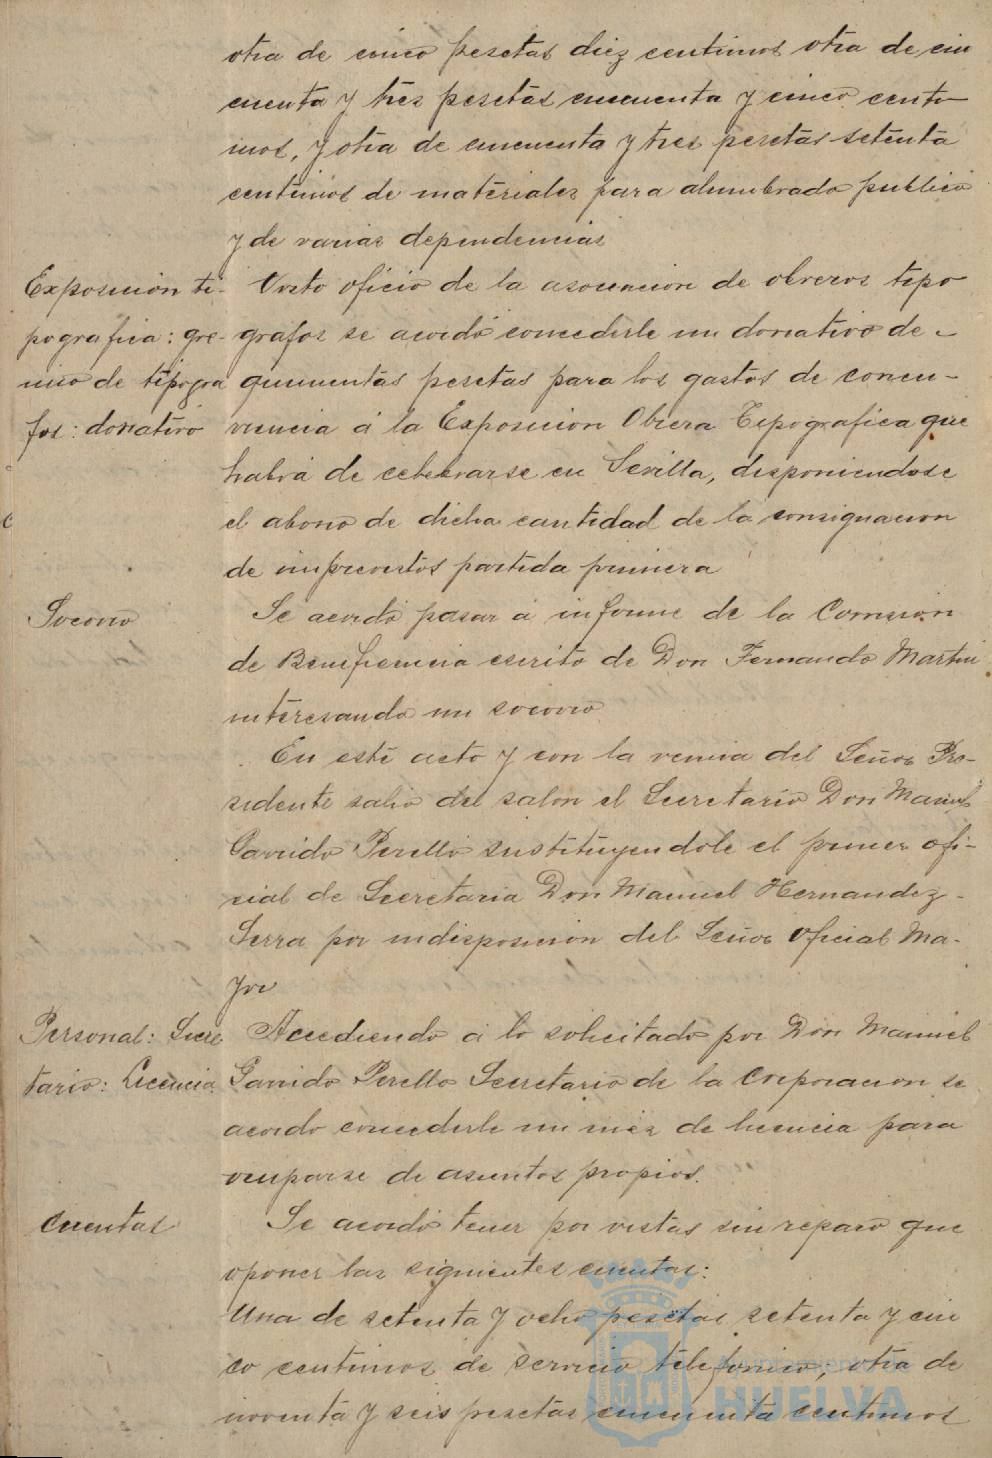 otra de cinco pesetas diez centimos otra de cin
cuenta y tres pesetas cincuenta y cinco centi-
mos, y otra de cincuenta y tres pesetas setenta
centimos de materiales para alumbrado publico
y de varias dependencias
Exposición ti-
pografica: gre-
mio de tipogra
fos: donativo
Visto oficio de la asociacion de obreros tipo
grafos se acordó concederle un donativo de
quinientas pesetas para los gastos de concu-
rrencia á la Exposicion Obrera Tipografica que
habrá de celebrarse en Sevilla, disponiendose
el abono de dicha cantidad de la consignacion
de imprevistos partida primera
Socorro
Se acordó pasar á informe de la Comision
de Beneficencia escrito de Don Fernando Martin
interesando un socorro
En este acto y con la venia del Señor Pre-
sidente salió del salon el Secretario Don Manuel
Garrido Perelló sustituyendole el primer ofi-
cial de Secretaria Don Manuel Hernandez
Serra por indisposicion del Señor Oficial Ma-
yor
Personal: Secre
tario: Licencia.
Accediendo á lo solicitado por Don Manuel
Garrido Perello Secretario de la Corporacion se
acordo concederle un mes de licencia para
ocuparse de asuntos propios.
Cuentas
Se acordó tener por vistas sin reparo que
oponer las siguientes cuentas:
Una de setenta y ocho pesetas setenta y cin
co centimos de servicio telefonico, otra de
noventa y seis pesetas cincuenta centimos
Ayuntamiento de
HUELVA